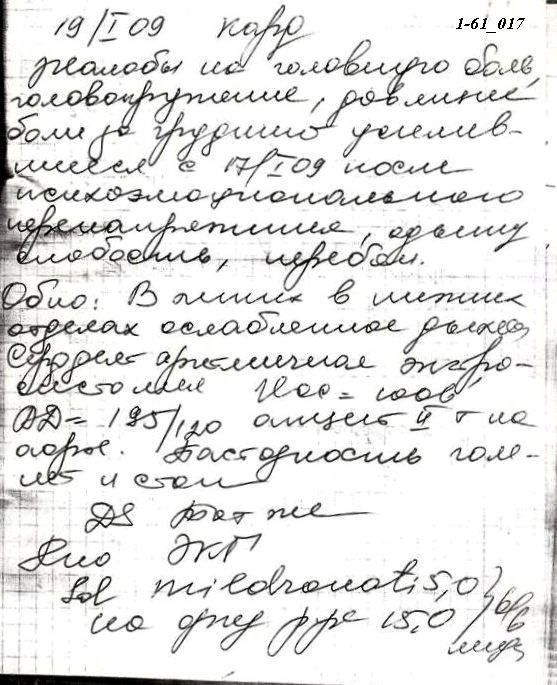 19/I 09 кард 1-61_017
Жалобы на головную боль,
головокружение, давящие
боли за грудиной усилив-
шиеся с 17/I 09 после
психоэмоционального
перенапряжения, одышку
слабость, перебои.
Обно: В легких в нижних
отделах ослабленное дыхан
Сердце аритмичная экстра-
систолия Чсс = 100 в'
АД = 195/120 акцент II т на
аорте. Пастозность голе-
ней и стоп
DS Тот же
Rно ЭКГ
Sol mildronati 5,0
на физ р-ре 15,0